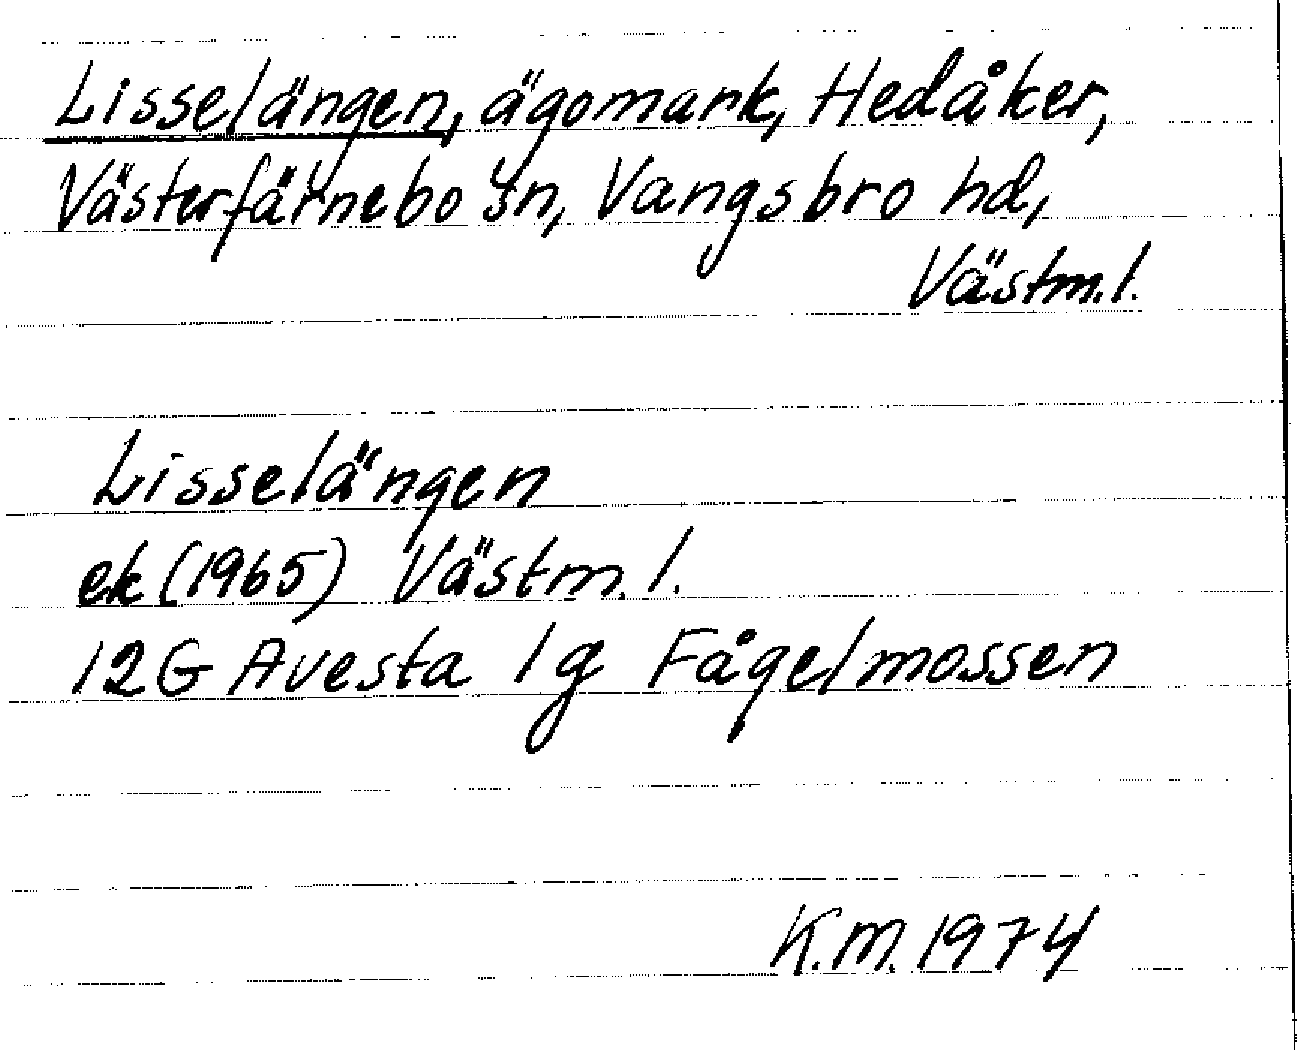 Lisselängen, ägomark, Hedåker,
Västerfärnebo sn, Vangsbro hd,
Västm.l.
Lisselängen
ek (1965) Västm.l.
12G Avesta 1g Fågelmossen
K.M. 1974